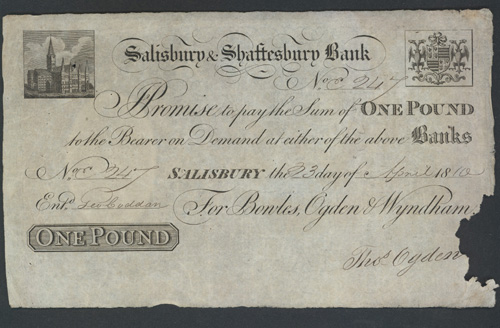 Salisbury & Shaftesbury Bank
No. 247
I Promise to pay the Sum of ONE POUND
to the Bearer on Demand at either of the above Banks
No. 247 SALISBURY the 23 day of April 1810
Entd. Geo Goddan For Bowles, Ogden & Wyndham
ONE POUND
Thos. Ogden